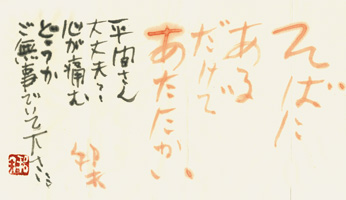 そばに
ある
だけで
あたたかい
平間さん
大丈夫?
心が痛む
どうか
ご無事でいて下さい。